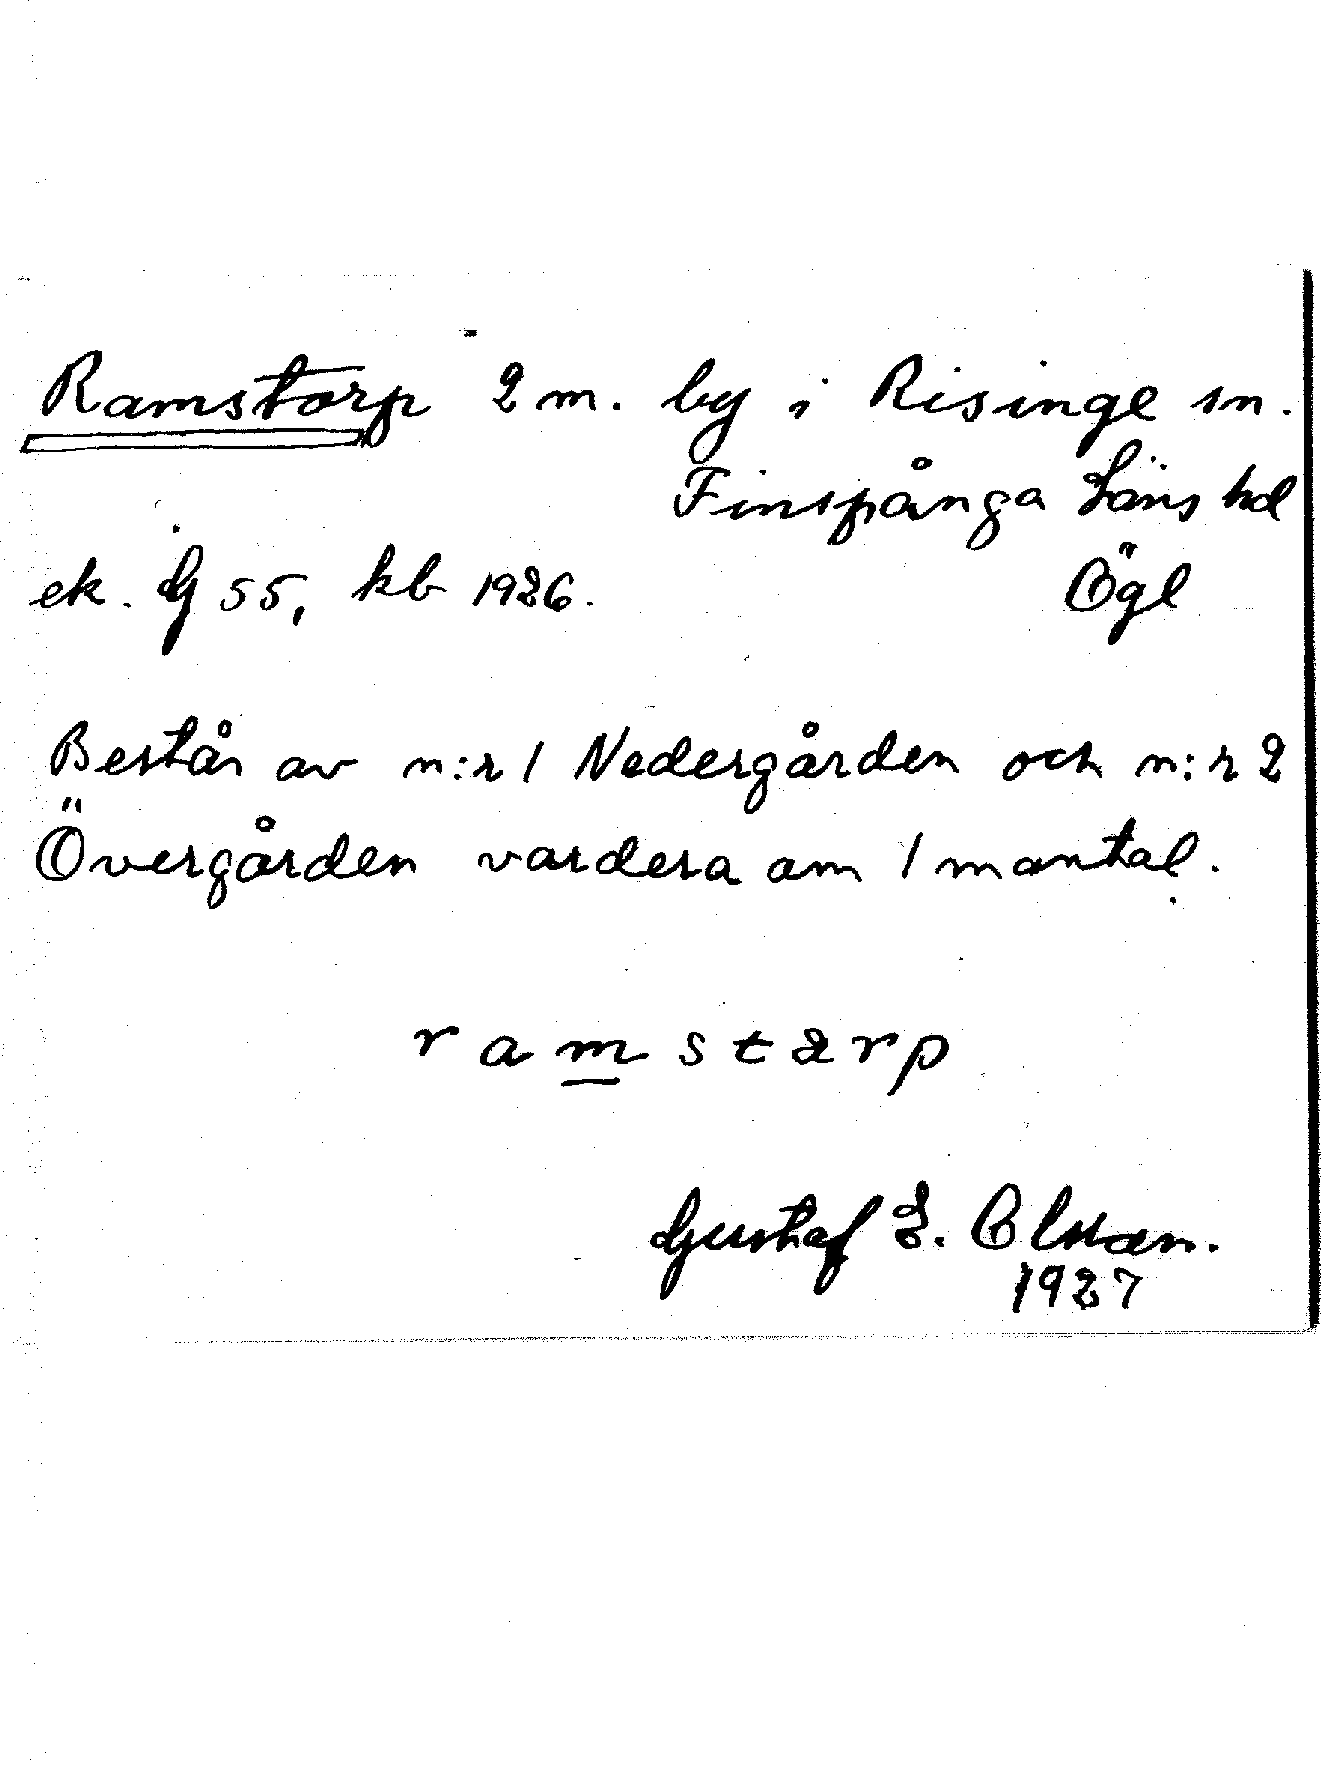 Ramstorp 2 m. by i Risinge sn.
Finspånga Läns hd
ek. G 55, kb 1926. Ögl
Består av n:r 1 Nedergården och n:r 2
Övergården vardera om 1 mantal.
ramstærp
Gustaf E. Olsson.
1927